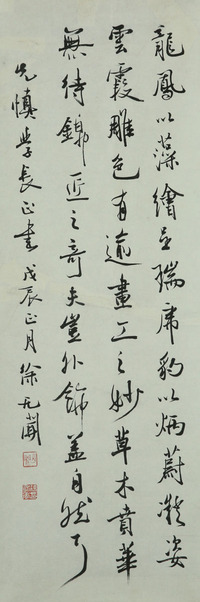 龍鳳以藻繪呈瑞虎豹以炳蔚凝姿
雲霞雕色有逾畫工之妙草木賁華
無待錦匠之奇夫豈外飾蓋自然耳
先慎學長正書戊辰正月徐无聞